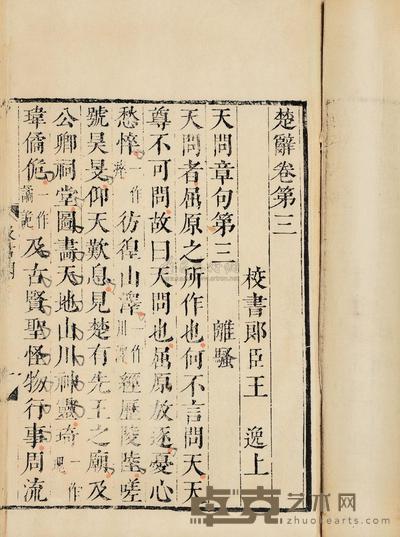 楚辭卷第三
校書郎臣王 逸上
天問章句第三 離騷
天問者屈原之所作也何不言問天天
尊不可問故曰天問也屈原放逐憂心
愁悴一作瘁彷徨山澤一作川澤經歷陵陸嗟
號昊旻仰天歎息見楚有先王之廟及
公卿祠堂圖畫天地山川神靈琦一作
瑋僑佹一作及古賢聖怪物行事周流
卓克艺术网
zhuokearts.com